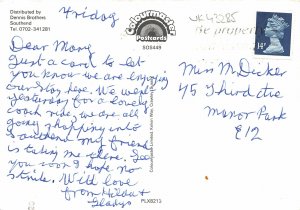 Distributed by
Dennis Brothers
Southend
Tel. 0702-341281
Friday
Colourmaster
Postcards
SOS449
Dear Mary
Just a card to let
you know we are enjoying
our stay here. We went
yesterday for a lovely
coach ride, we are all
going shopping into
Southend my friend
is taking me there.
you won't hope no
strike. With love
from Hilda &
Gladys
PLX8213
be properly
14P
Miss M Ducker
45 Third Ave
Manor Park
E12